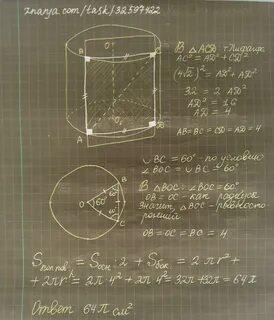 znanya.com/task/32597422
В △ACD т. Пифагора
AC² = AD² + CD²
(4√2)² = AD² + AD²
32 = 2 AD²
AD² = 16
AD = 4
AB = BC = CD = AD = 4
A
B
O₁
O
∪BC = 60° - по условию
∠BOC = ∪BC = 60°
В △BOC: ∠BOC = 60°
OB = OC - как радиусы
Значит, △BOC - равносто-
ронний
OB = OC = BC = 4
B
O
60°
60°
C
Sпол.пов = Sосн · 2 + Sбок = 2πr² +
+ 2πrh = 2π·4² + 2π·4² = 32π+32π = 64π
Ответ 64π см²